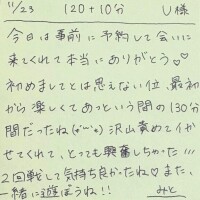 11/23 120+10分 U様
今日は事前に予約して会いに
来てくれて本当にありがとう♡♡
初めましてとは思えない位、最初
から楽しくてあっという間の130分
間だったね(*´︶`*) 沢山責めてイか
せてくれて、とっても興奮しちゃった!!!
2回戦して気持ち良かたね♡また、
一緒に遊ぼうね!! みと